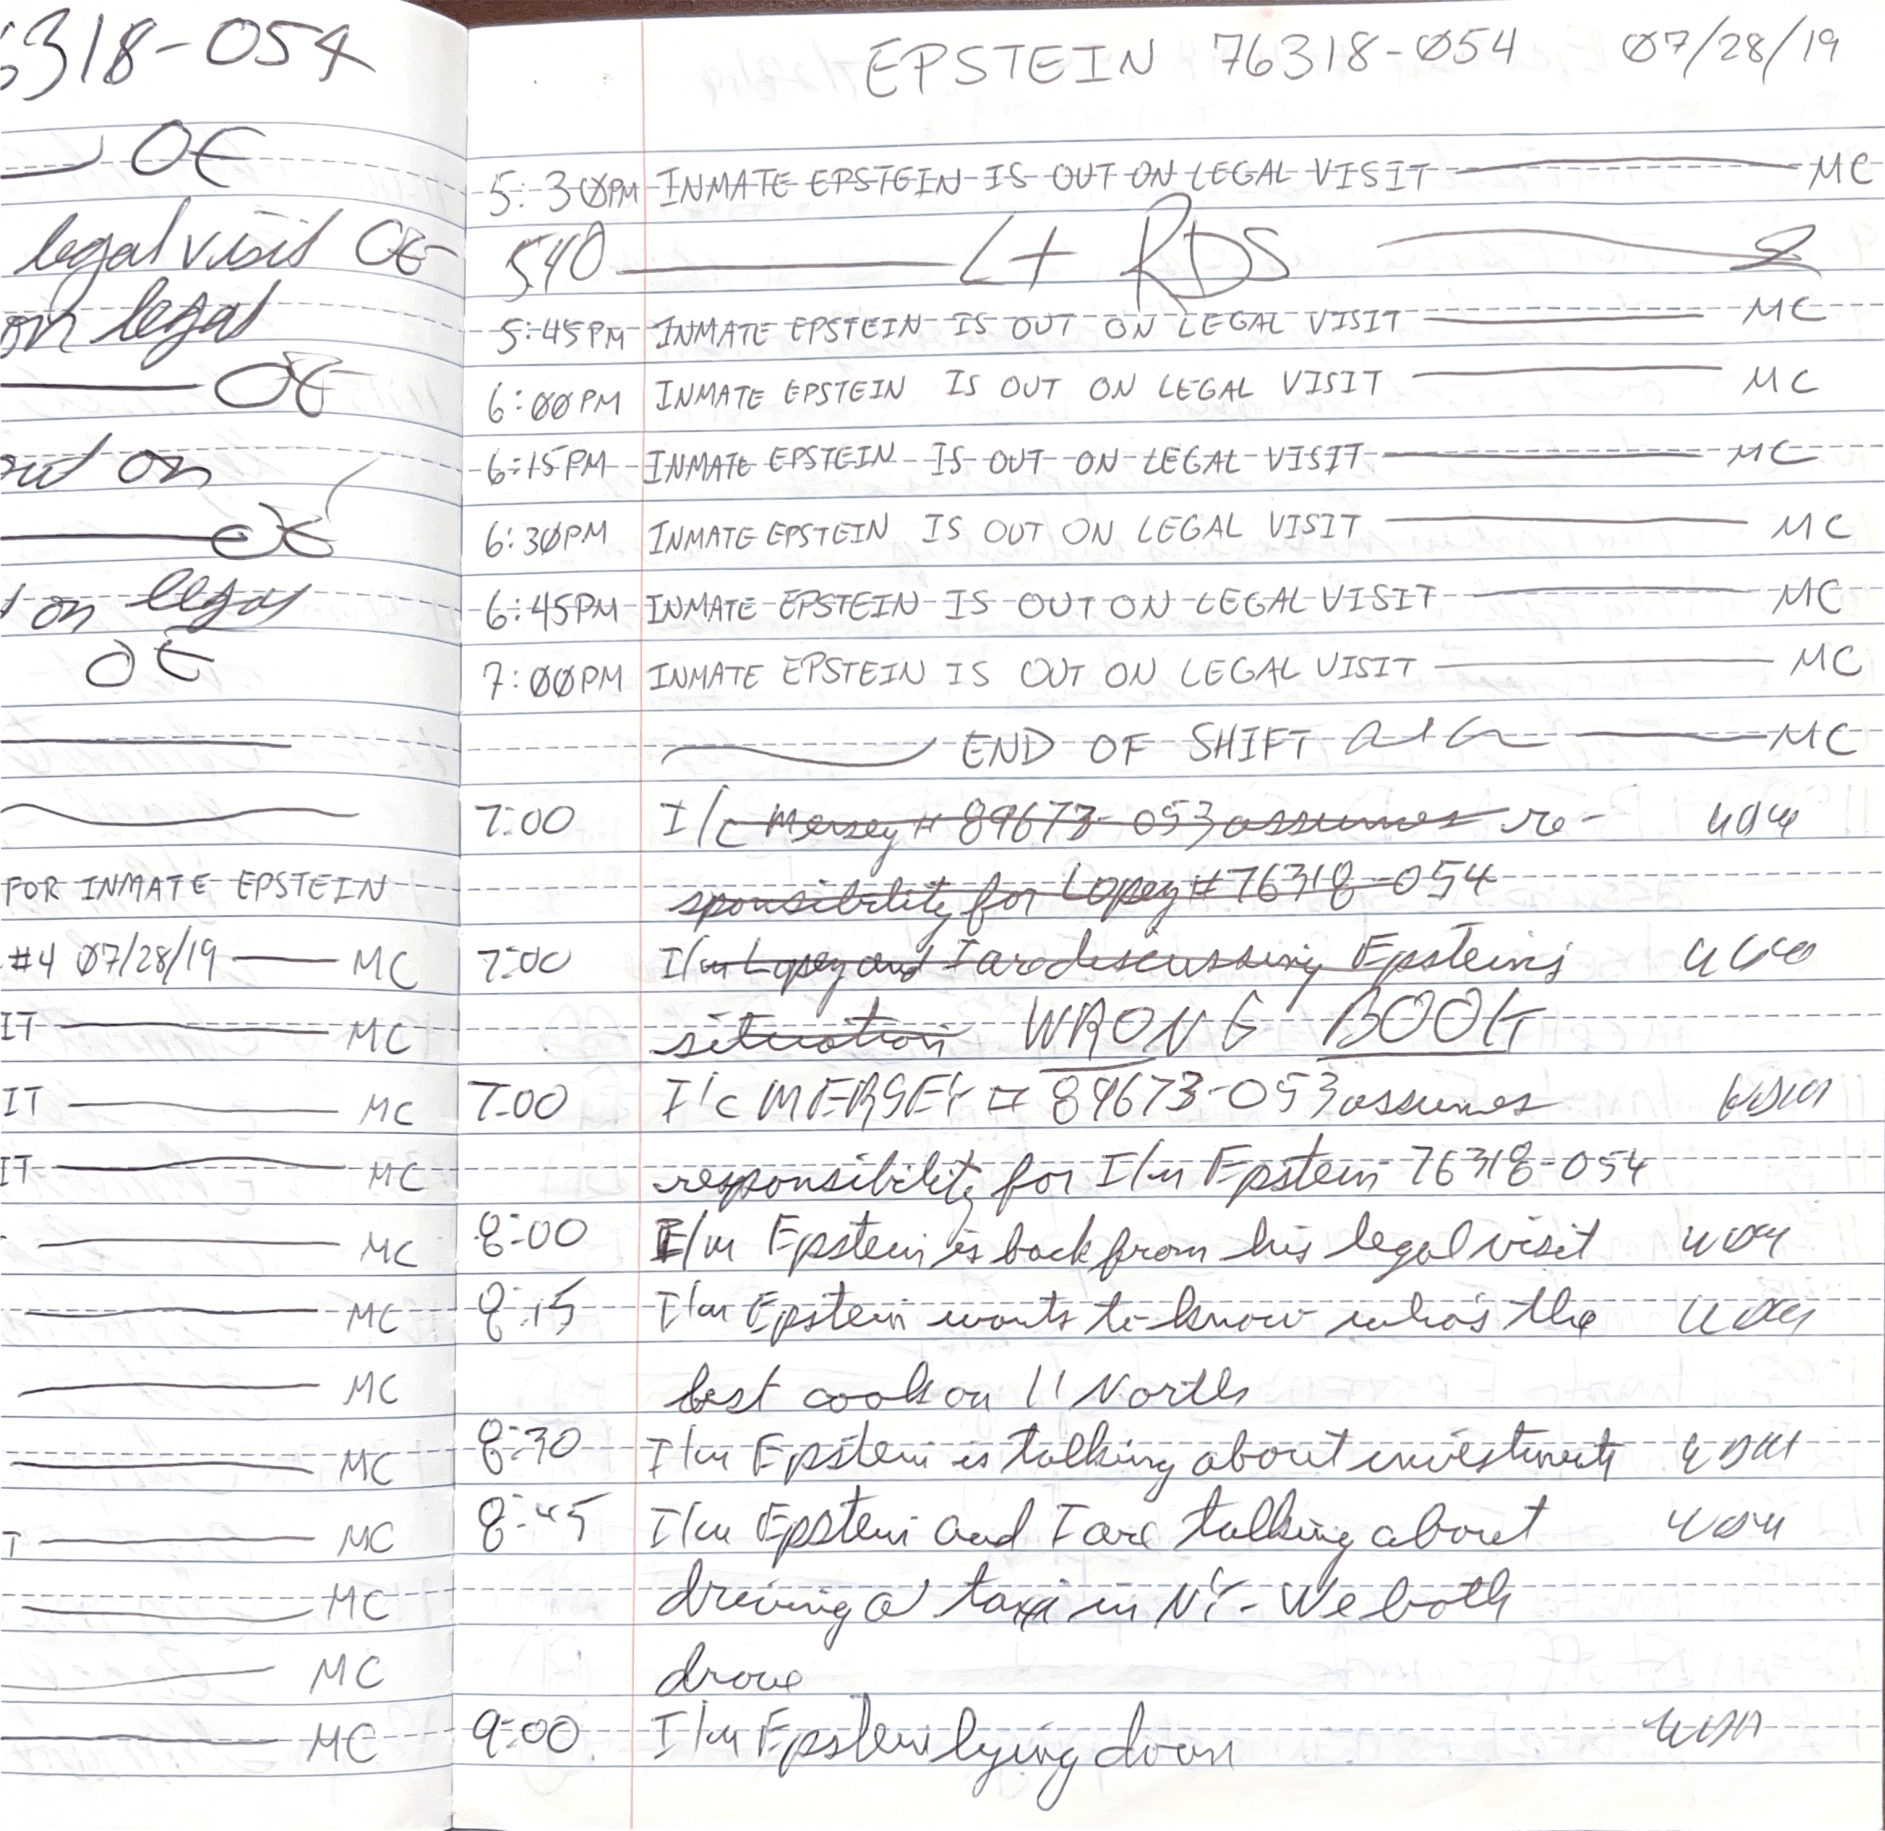 6318-054
OE
legal visit OE
on legal
OE
out on
OE
on legal
OE
FOR INMATE EPSTEIN
#4 07/28/19 MC
IT MC
IT MC
IT MC
MC
MC
MC
MC
T MC
MC
MC
MC
EPSTEIN 76318-054 07/28/19
5:30PM INMATE EPSTEIN IS OUT ON LEGAL VISIT MC
540 Lt RDS
5:45PM INMATE EPSTEIN IS OUT ON LEGAL VISIT MC
6:00PM INMATE EPSTEIN IS OUT ON LEGAL VISIT MC
6:15PM INMATE EPSTEIN IS OUT ON LEGAL VISIT MC
6:30PM INMATE EPSTEIN IS OUT ON LEGAL VISIT MC
6:45PM INMATE EPSTEIN IS OUT ON LEGAL VISIT MC
7:00PM INMATE EPSTEIN IS OUT ON LEGAL VISIT MC
END OF SHIFT MC
7:00 I/c Mersey # 89673-053 assumes re-
sponsibility for Lopez # 76318-054
7:00 I/m Lopez and I are discussing Epstein's
situation WRONG BOOK
7:00 I/c MERSEY # 89673-053 assumes
responsibility for I/m Epstein 76318-054
8:00 I/m Epstein is back from his legal visit
8:15 I/m Epstein wants to know who's the
best cook on 11 North
8:30 I/m Epstein is talking about investments
8:45 I/m Epstein and I are talking about
driving a taxi in NY - We both
drove
9:00 I/m Epstein lying down